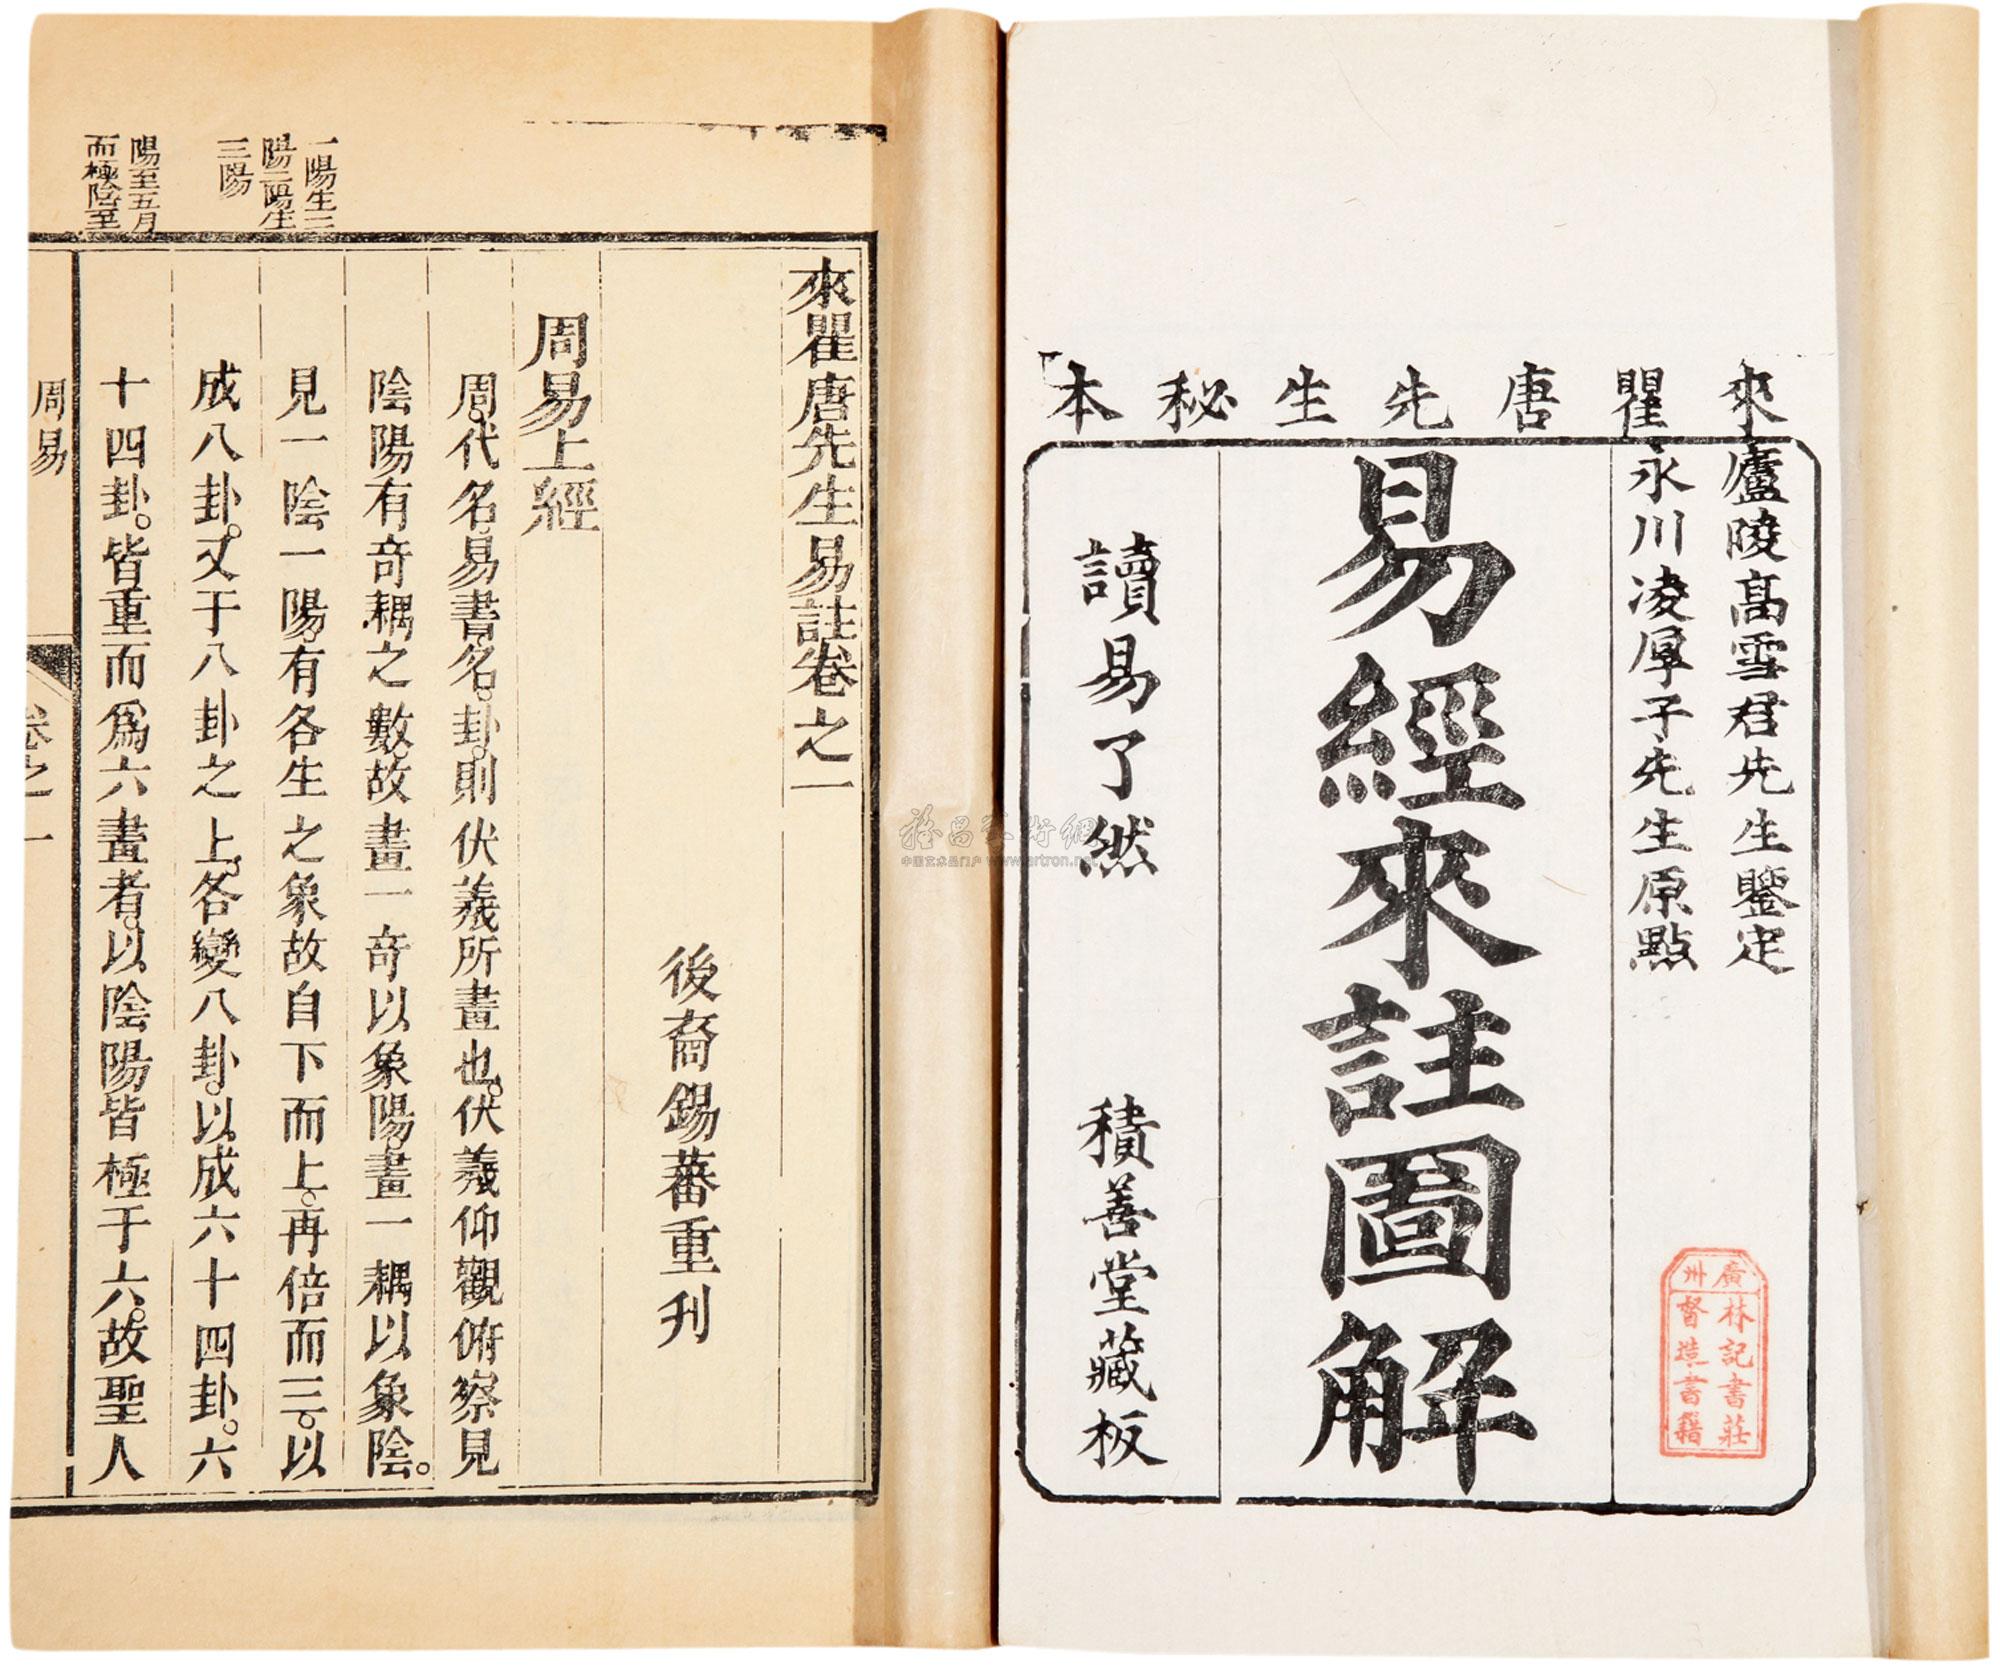 來瞿唐先生秘本
廬陵高雪君先生鑒定
永川凌厚子先生原點
易經來註圖解
讀易了然
積善堂藏板
廣州
林記書莊
督造書籍
來瞿唐先生易註卷之一
後裔錫蕃重刊
周易上經
周代名易書名卦則伏羲所畫也伏羲仰觀俯察見
陰陽有奇耦之數故畫一奇以象陽畫一耦以象陰
見一陰一陽有各生之象故自下而上再倍而三以
成八卦又于八卦之上各變八卦以成六十四卦六
十四卦皆重而爲六畫者以陰陽皆極于六故聖人
一陽生二
陽二陽生
三陽
陽至五月
而極陰至
周易
卷之一
中国艺术品门户 www.artron.net